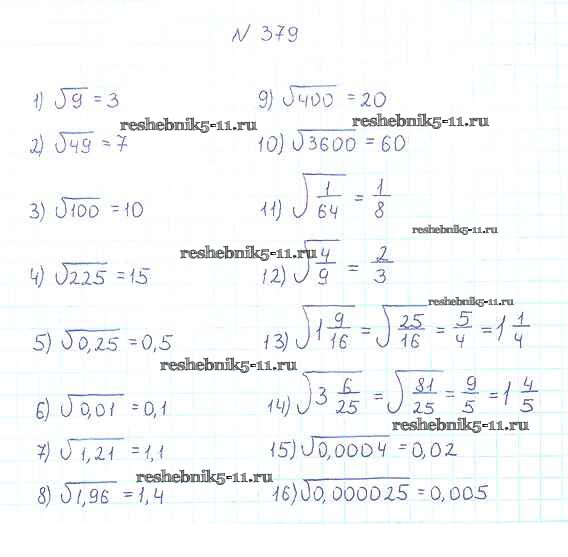 N 379
1) √9 = 3
2) √49 = 7
3) √100 = 10
4) √225 = 15
5) √0,25 = 0,5
6) √0,01 = 0,1
7) √1,21 = 1,1
8) √1,96 = 1,4
9) √400 = 20
10) √3600 = 60
11) √1/64 = 1/8
12) √4/9 = 2/3
13) √1 9/16 = √25/16 = 5/4 = 1 1/4
14) √3 6/25 = √81/25 = 9/5 = 1 4/5
15) √0,0004 = 0,02
16) √0,000025 = 0,005
reshebnik5-11.ru
reshebnik5-11.ru
reshebnik5-11.ru
reshebnik5-11.ru
reshebnik5-11.ru
reshebnik5-11.ru
reshebnik5-11.ru
reshebnik5-11.ru